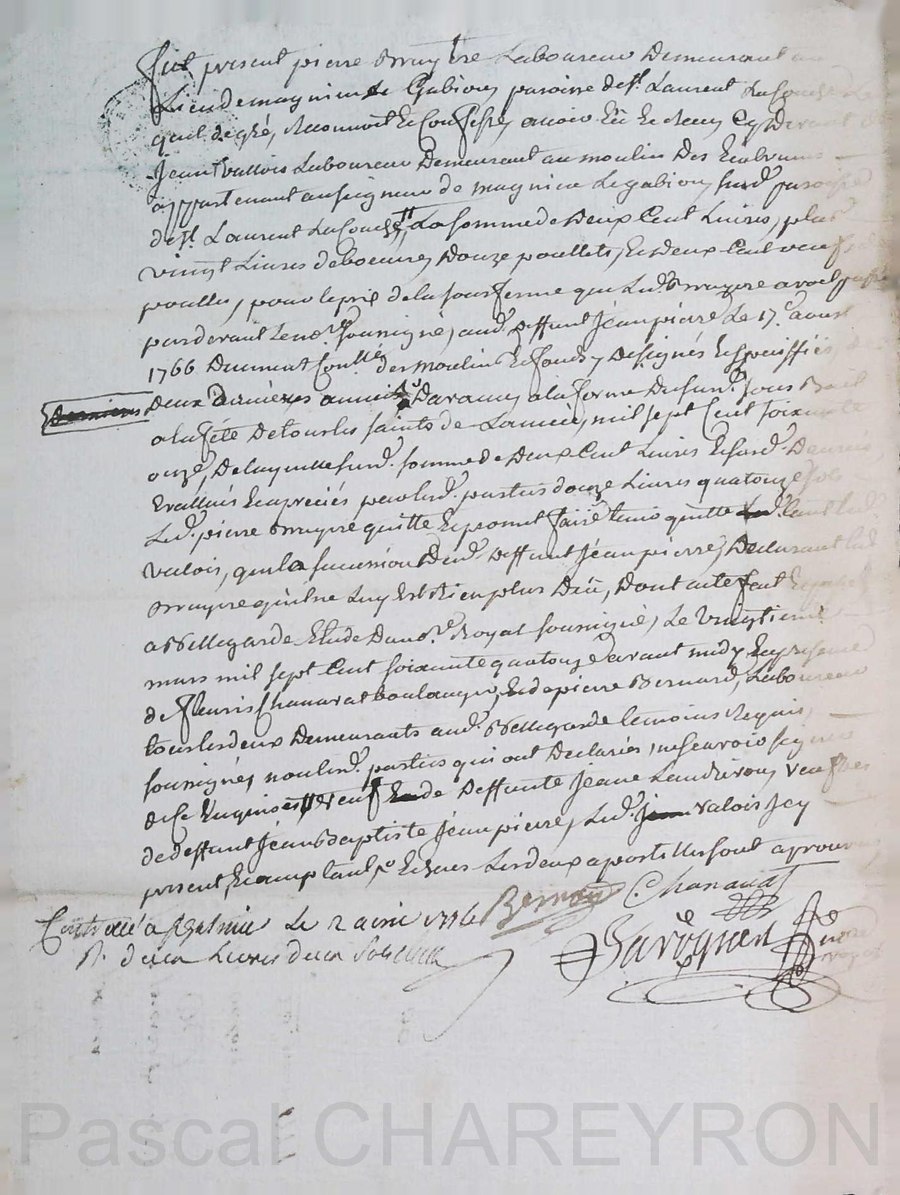 fut present pierre Bruyere Laboureur Demeurant au
Lieu de magnieu Le Gabion paroisse de st. Laurent La Conche Le
quel de gré, Reconnoit Et Confesse, avoir Eü Et Recu Cy Devant
Jean Vallois Laboureur Demeurant au moulin Des
appartenant au seigneur de magnieu Le gabion susd. paroisse
de st. Laurent La Conche, La somme de Deux Cent Livres, plus
vingt Livres de beurre, Douze poullets, Et Deux Cent
pour le prix de la sous ferme que Led. Bruyere avoit passé
par devant Le nore. soussigné, aud. Deffunt Jeanpierre Le 17e. aoust
1766 Duement Conllé. des moulin Et fonds y Désignés Et Speciffiés,
deux Dernieres années a la forme Du susd. sous Bail
a la fête De tous les saints de Lannée, mil sept Cent soixante
onze, De laquelle susd. somme de Deux Cent Livres Et susd. Denrées
Evallués Et apreciés par lesd. parties Douze Livres quatorze sols
Led. pierre Bruyere quitte Et promet faire tenir quitte tant Led.
valois, que la succession Dud. Deffunt Jeanpierre, Declarant led.
Bruyere qu'il ne Luy Est Rien plus Dû, Dont acte fait Et passé
a Bellegarde Etude Du nore. Royal soussigné, Le vingtieme
mars mil sept Cent soixante quatorze avant midy En presence
de fleuris Chanavat boulanger, Et de pierre Bernard, Laboureur
tous les deux Demeurants aud. Bellegarde temoins Requis,
soussignés, non lesd. parties qui ont Declarés, ne sçavoir signer
de Ce Enquis Et de Deffunte Jeane Landrivon veufve
de deffunt Jean Baptiste Jeanpierre, Led. valois Icy
present Et acceptant Les deux apostilles sont aprouvées
Bernard Chanavat
Controllé a St Galmier Le 2 avril 1774
R. deux Livres deux Sols
nore
royal
Pascal CHAREYRON